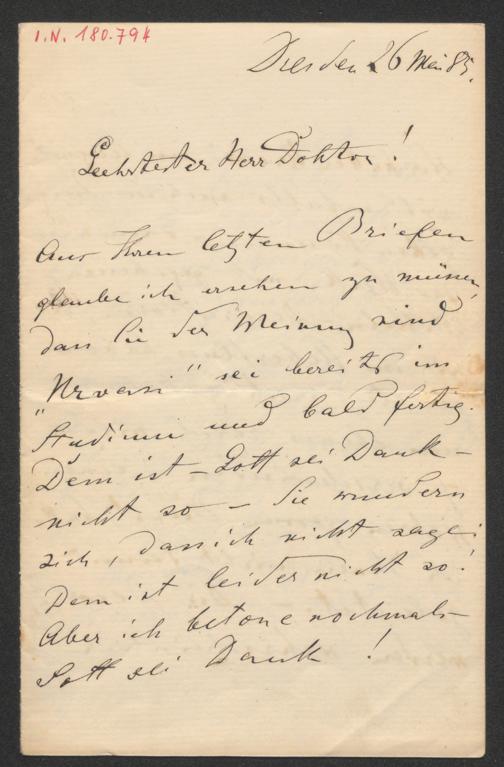 I.N. 180.794
Dresden 26 Mai 85.
Geehrtester Herr Doktor!
Aus Ihren letzten Briefen
glaube ich ersehen zu müssen,
dass Sie der Meinung sind
"Urvasi" sei bereits im
Studium und bald fertig.
Dem ist – Gott sei Dank –
nicht so – Sie wundern
sich, dass ich nicht sage:
Dem ist leider nicht so!
Aber ich betone nochmals
Gott sei Dank!